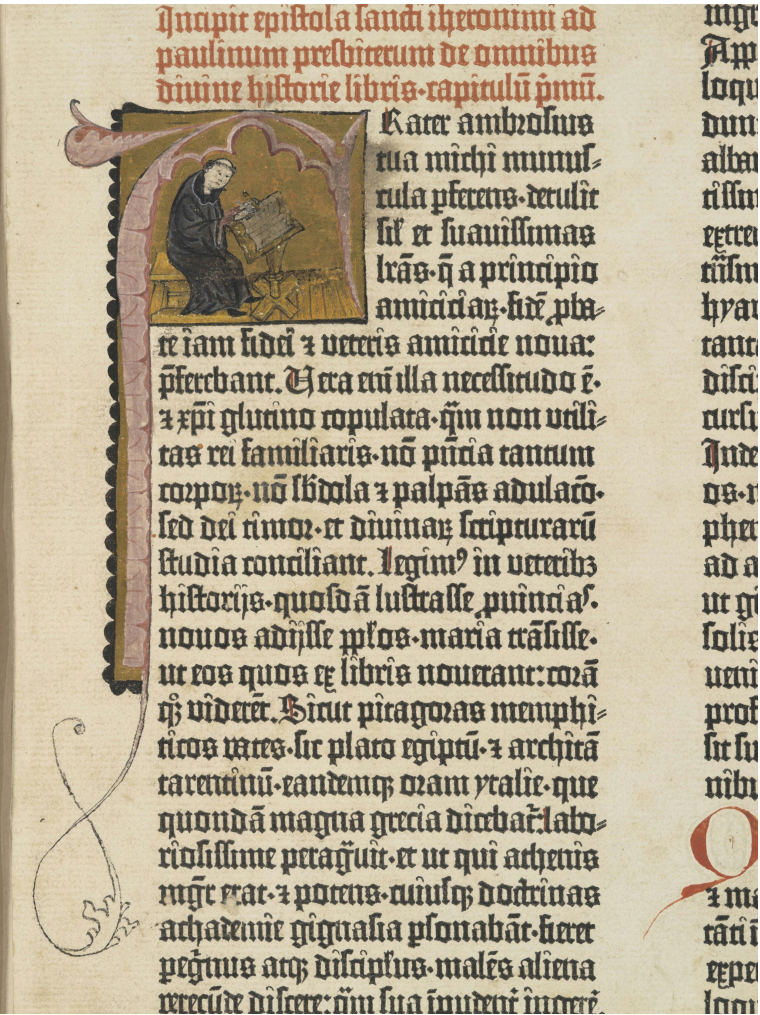 Incipit epistola sancti iheronimi ad
paulinum presbiterum de omnibus
divine historie libris·capitulū p̄mū.
Frater ambrosius
tua michi munus-
cula pferens·detulit
sil̄ et suavissimas
lrās·q̄ a principio
amiciciaꝝ·fidē ꝓba-
te iam fidei ⁊ veteris amicicie nova:
p̄ferebant. Vera eni̅ illa necessitudo ē·
⁊ xp̄i glutino copulata·q̄m non utili-
tas rei familiaris·nō pn̄cia tantum
corpoꝝ·nō sb̄dola ⁊ palpās adulacō·
sed dei timor·et divinaꝝ scripturarū
studia conciliant. Legimꝰ in veteribꝫ
historijs·quosdā lustrasse ꝓvinciaˢ·
novos adijsse ppl̄os·maria trāsisse·
ut eos quos ex libris noverant: corā
qꝫ viderēt. Sicut pitagoras memphi-
ticos vates·sic plato egiptū·⁊ architā
tarentinū·eandemqꝫ oram ytalie·que
quondā magna grecia dicebat̄: labo-
riosissime peragͣvit·et ut qui athenis
mgr̄ erat·⁊ potens·cuiusqꝫ doctrinas
achademie gignasia ꝑsonabāt·fieret
peg̊rinus atqꝫ discipl̄us·malēs aliena
verecūde discere: q̄m sua īpudent̄ ingerē.
mgr
App
loqu
duni
alban
tissim
extre
tiism
hyar
tanta
disci
cursu
Inde
os·n
phen
ad a
ut gi
solis
veni
prof
sit su
nibu
O
⁊ ma
tāti i
expe
loqu